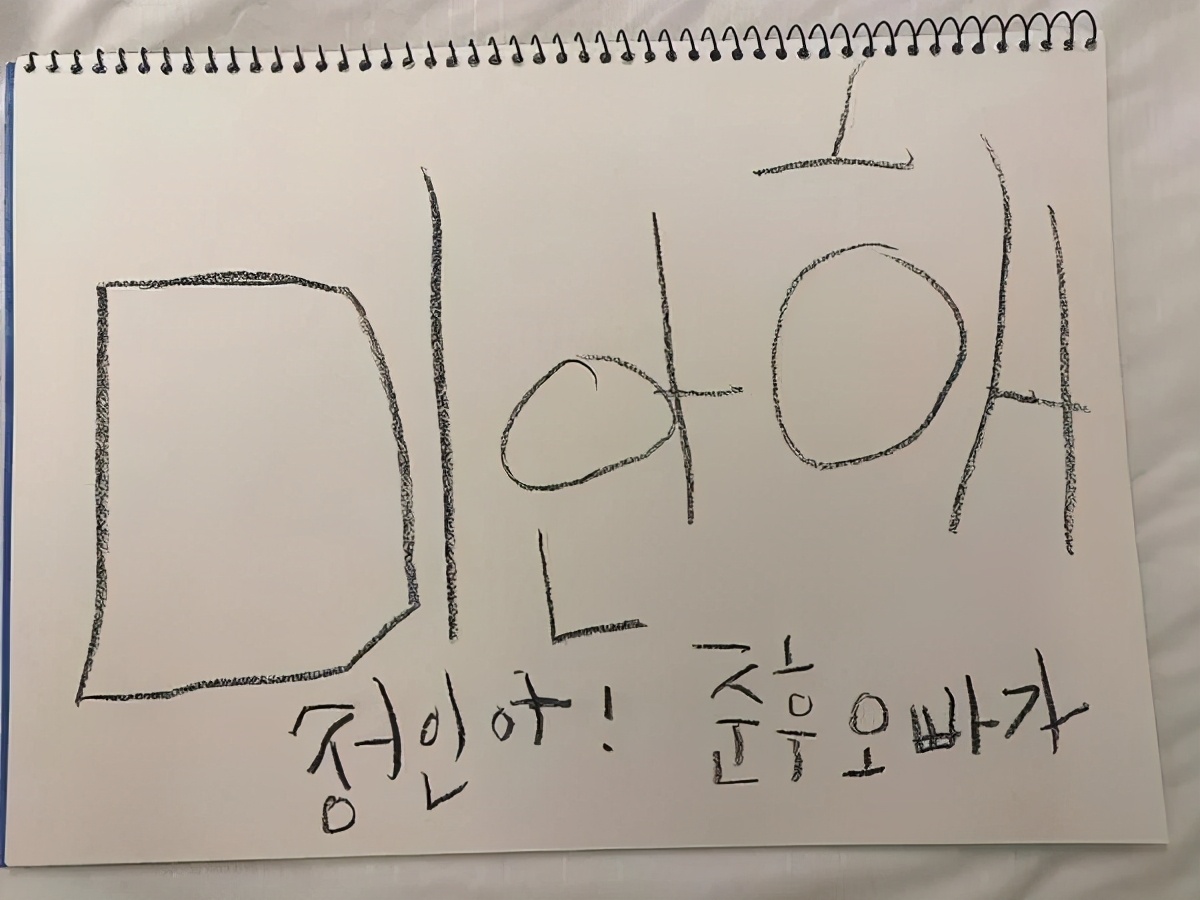 미안해
정인아! 준휴오빠가